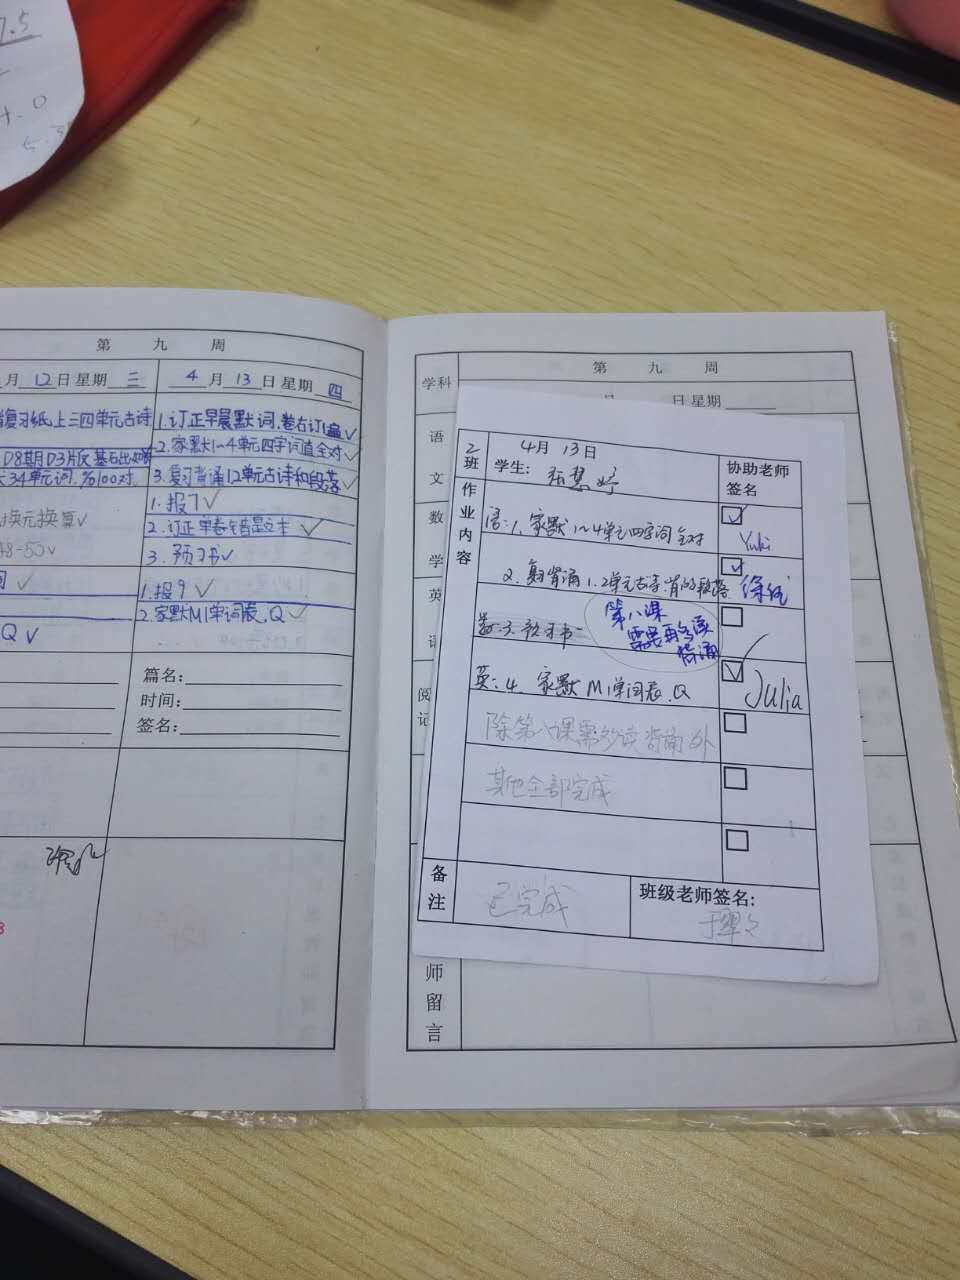 7.5
4.0
第 九 周
月 12 日 星期 三
4 月 13 日 星期 四
复习纸上三四单元古诗
1.订正早晨默词,卷右订1
2.家默1~4单元四字词直全对✓
D8期D3片反
34单元词.%100对.
3.复习背诵12单元古诗和段落✓
1.报7✓
换元换
2.订正单卷错
48-55✓
3.预习书✓
1.报9✓
2.家默M1单词表,Q✓
Q✓
篇名:
时间:
签名:
第 九 周
学科
日 星期
语文
数学
英语
阅
记
师留言
2班
4月 13日
学生: 张慧婷
协助老师签名
作业内容
语:1.家默1~4单元四字词全对
Yuki
2.复习背诵1.2单元古诗.
徐
数:3.预习书
第八课
需要再多读
背诵
英:4.家默M1单词表.Q
Julia
除第八课需多读背诵外
其他全部完成
备注
已完成
班级老师签名: